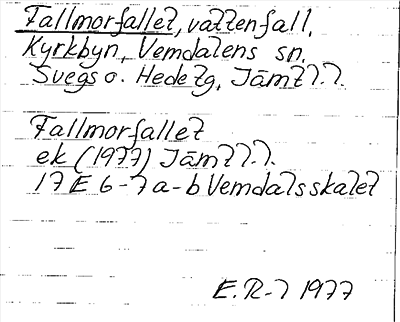 Fallmorfallet, vattenfall.
Kyrkbyn, Vemdalens sn.
Svegs o. Hede tg, Jämtl.l.
Fallmorfallet
ek (1977) Jämtl.l.
17E 6-7 a-b Vemdalsskalet
E.R-l 1977